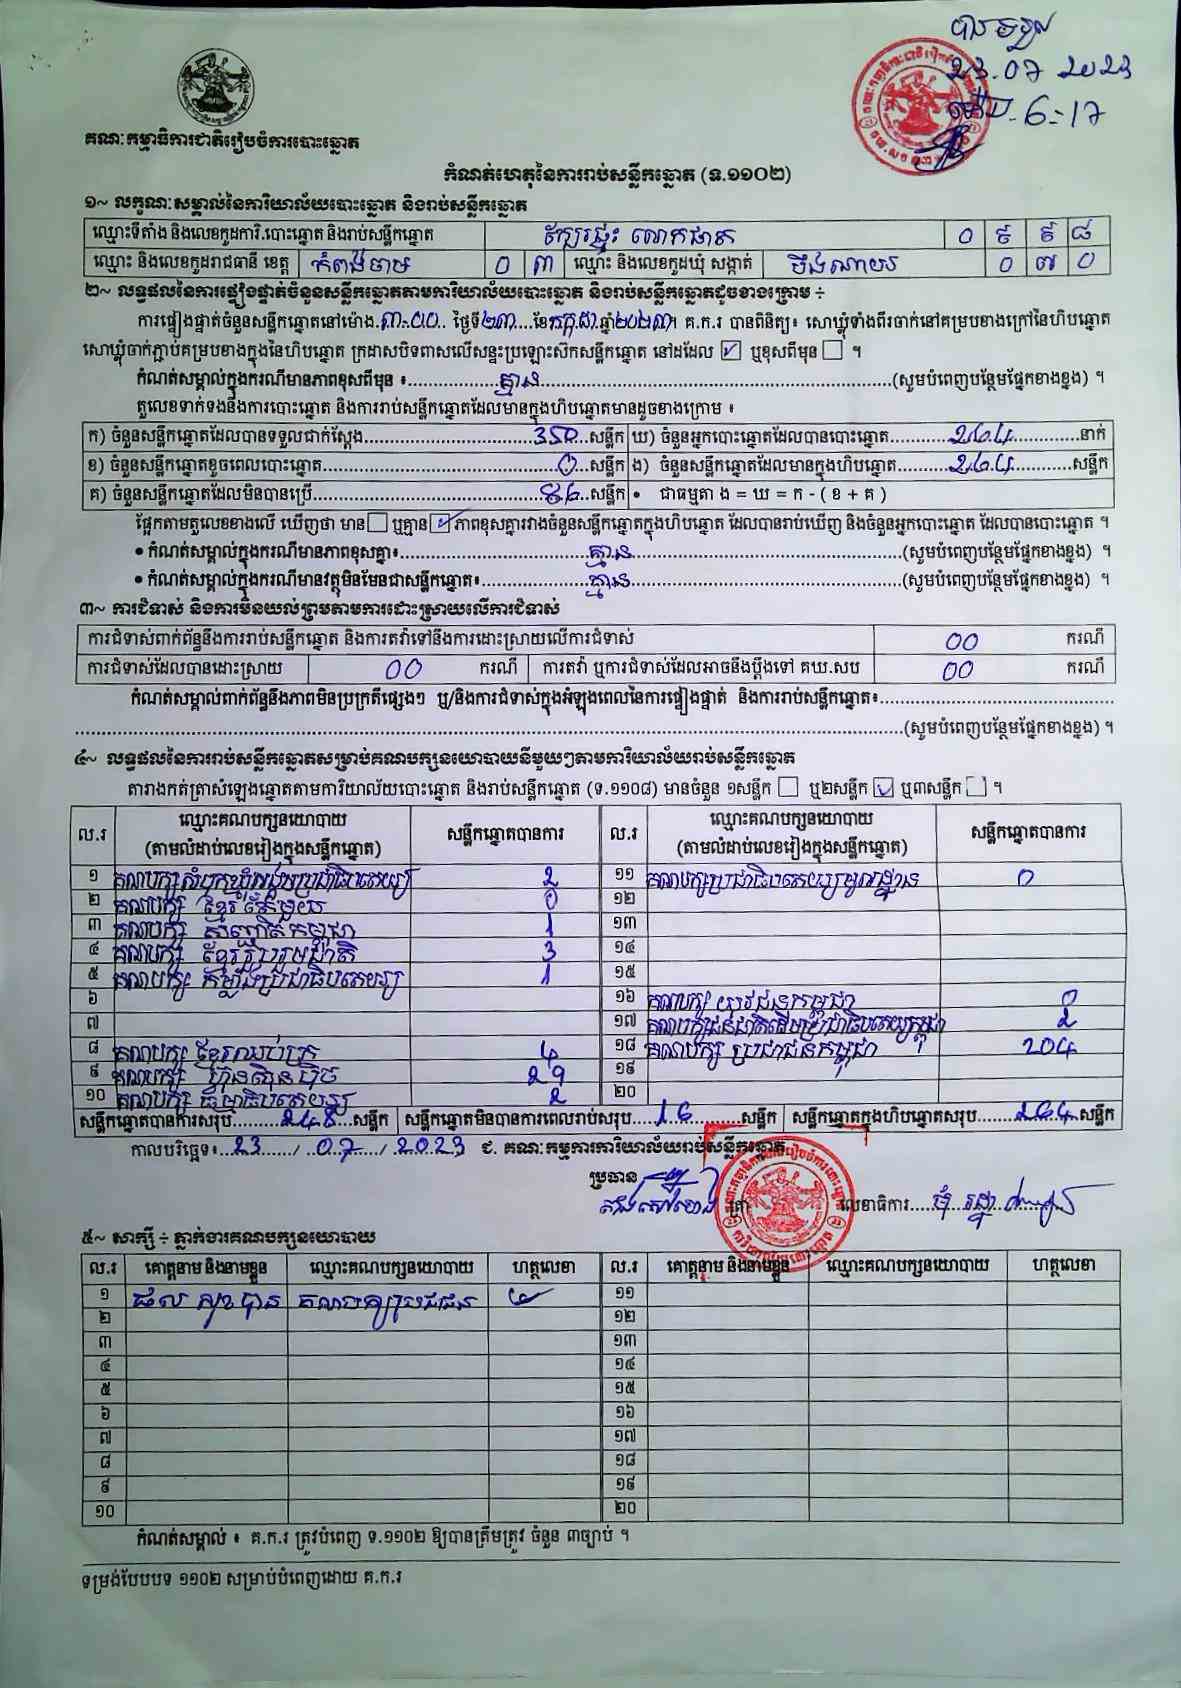 បានទទួល
23.07 2023
ម៉ោង 6:17
គណៈកម្មាធិការជាតិរៀបចំការបោះឆ្នោត
កំណត់ហេតុនៃការរាប់សន្លឹកឆ្នោត (ទ.១១០២)
១~ លក្ខណៈសម្គាល់នៃការិយាល័យបោះឆ្នោត និងរាប់សន្លឹកឆ្នោត
ឈ្មោះទីតាំង និងលេខកូដការិ.បោះឆ្នោត និងរាប់សន្លឹកឆ្នោត ក្បែរផ្ទះ លោកផាត ០ ៩ ៩ ៨
ឈ្មោះ និងលេខកូដរាជធានី ខេត្ត កំពង់ចាម ០ ៣ ឈ្មោះ និងលេខកូដឃុំ សង្កាត់ បឹងណាយ ០ ៧ ០
២~ លទ្ធផលនៃការផ្ទៀងផ្ទាត់ចំនួនសន្លឹកឆ្នោតតាមការិយាល័យបោះឆ្នោត និងរាប់សន្លឹកឆ្នោតដូចខាងក្រោម ÷
ការផ្ទៀងផ្ទាត់ចំនួនសន្លឹកឆ្នោតនៅម៉ោង.៣:០០.. ថ្ងៃទី២៣....ខែកក្កដា.ឆ្នាំ២០២៣។ គ.ក.រ បានពិនិត្យ៖ សោឃ្លុំទាំងពីរចាក់នៅគម្របខាងក្រៅនៃហិបឆ្នោត
សោឃ្លុំចាក់ភ្ជាប់គម្របខាងក្នុងនៃហិបឆ្នោត ក្រដាសបិទពាសលើសន្ទះប្រឡោះស៊កសន្លឹកឆ្នោត នៅដដែល ☑ ឬខុសពីមុន ☐ ។
កំណត់សម្គាល់ក្នុងករណីមានភាពខុសពីមុន ៖..................គ្មាន..................(សូមបំពេញបន្ថែមផ្នែកខាងខ្នង) ។
តួលេខទាក់ទងនឹងការបោះឆ្នោត និងការរាប់សន្លឹកឆ្នោតដែលមានក្នុងហិបឆ្នោតមានដូចខាងក្រោម ៖
ក) ចំនួនសន្លឹកឆ្នោតដែលបានទទួលជាក់ស្តែង..........350..សន្លឹក ឃ) ចំនួនអ្នកបោះឆ្នោតដែលបានបោះឆ្នោត..........264..........នាក់
ខ) ចំនួនសន្លឹកឆ្នោតខូចពេលបោះឆ្នោត..........0..សន្លឹក ង) ចំនួនសន្លឹកឆ្នោតដែលមានក្នុងហិបឆ្នោត..........264..........សន្លឹក
គ) ចំនួនសន្លឹកឆ្នោតដែលមិនបានប្រើ..........86..សន្លឹក • ជាធម្មតា ង = ឃ = ក - ( ខ + គ )
ផ្អែកតាមតួលេខខាងលើ ឃើញថា មាន☐ ឬគ្មាន☑ភាពខុសគ្នារវាងចំនួនសន្លឹកឆ្នោតក្នុងហិបឆ្នោត ដែលបានរាប់ឃើញ និងចំនួនអ្នកបោះឆ្នោត ដែលបានបោះឆ្នោត ។
• កំណត់សម្គាល់ក្នុងករណីមានភាពខុសគ្នា៖..........គ្មាន..........(សូមបំពេញបន្ថែមផ្នែកខាងខ្នង) ។
• កំណត់សម្គាល់ក្នុងករណីមានវត្ថុមិនមែនជាសន្លឹកឆ្នោត៖..........គ្មាន..........(សូមបំពេញបន្ថែមផ្នែកខាងខ្នង) ។
៣~ ការជំទាស់ និងការមិនយល់ព្រមតាមការដោះស្រាយលើការជំទាស់
ការជំទាស់ពាក់ព័ន្ធនឹងការរាប់សន្លឹកឆ្នោត និងការតវ៉ាទៅនឹងការដោះស្រាយលើការជំទាស់ 00 ករណី
ការជំទាស់ដែលបានដោះស្រាយ 00 ករណី ការតវ៉ា ឬការជំទាស់ដែលអាចនឹងប្តឹងទៅ គឃ.សប 00 ករណី
កំណត់សម្គាល់ពាក់ព័ន្ធនឹងភាពមិនប្រក្រតីផ្សេងៗ ឬ/និងការជំទាស់ក្នុងអំឡុងពេលនៃការផ្ទៀងផ្ទាត់ និងការរាប់សន្លឹកឆ្នោត៖..........
..........(សូមបំពេញបន្ថែមផ្នែកខាងខ្នង) ។
៤~ លទ្ធផលនៃការរាប់សន្លឹកឆ្នោតសម្រាប់គណបក្សនយោបាយនីមួយៗតាមការិយាល័យរាប់សន្លឹកឆ្នោត
តារាងកត់ត្រាសំឡេងឆ្នោតតាមការិយាល័យបោះឆ្នោត និងរាប់សន្លឹកឆ្នោត (ទ.១១០៨) មានចំនួន ១សន្លឹក ☐ ឬ២សន្លឹក ☑ ឬ៣សន្លឹក ☐ ។
ល.រ ឈ្មោះគណបក្សនយោបាយ (តាមលំដាប់លេខរៀងក្នុងសន្លឹកឆ្នោត) សន្លឹកឆ្នោតបានការ ល.រ ឈ្មោះគណបក្សនយោបាយ (តាមលំដាប់លេខរៀងក្នុងសន្លឹកឆ្នោត) សន្លឹកឆ្នោតបានការ
១ គណបក្សសំបុកឃ្មុំសង្គមប្រជាធិបតេយ្យ 2 ១១ គណបក្សប្រជាធិបតេយ្យមូលដ្ឋាន 0
២ គណបក្ស ខ្មែរតែមួយ 0 ១២
៣ គណបក្ស សញ្ជាតិកម្ពុជា 1 ១៣
៤ គណបក្ស ខ្មែររួបរួមជាតិ 3 ១៤
៥ គណបក្ស កម្លាំងប្រជាធិបតេយ្យ 1 ១៥
៦ ១៦ គណបក្ស យុវជនកម្ពុជា 0
៧ ១៧ គណបក្សជនជាតិដើមប្រជាធិបតេយ្យកម្ពុជា 2
៨ គណបក្ស ខ្មែរឈប់ក្រ 4 ១៨ គណបក្ស ប្រជាជនកម្ពុជា 204
៩ គណបក្ស ហ៊្វុនស៊ិនប៉ិច 29 ១៩
១០ គណបក្ស ធម្មាធិបតេយ្យ 2 ២០
សន្លឹកឆ្នោតបានការសរុប..........248...សន្លឹក សន្លឹកឆ្នោតមិនបានការពេលរាប់សរុប...16..........សន្លឹក សន្លឹកឆ្នោតក្នុងហិបឆ្នោតសរុប..........264.សន្លឹក
កាលបរិច្ឆេទ៖...23....../...07..../..2023 ជ. គណៈកម្មការការិយាល័យរាប់សន្លឹកឆ្នោត
ប្រធាន
លេខាធិការ
៥~ សាក្សី ÷ ភ្នាក់ងារគណបក្សនយោបាយ
ល.រ គោត្តនាម និងនាមខ្លួន ឈ្មោះគណបក្សនយោបាយ ហត្ថលេខា ល.រ គោត្តនាម និងនាមខ្លួន ឈ្មោះគណបក្សនយោបាយ ហត្ថលេខា
១ ផល សុខបាន គណបក្សប្រជាជន ១១
២ ១២
៣ ១៣
៤ ១៤
៥ ១៥
៦ ១៦
៧ ១៧
៨ ១៨
៩ ១៩
១០ ២០
កំណត់សម្គាល់ ៖ គ.ក.រ ត្រូវបំពេញ ទ.១១០២ ឱ្យបានត្រឹមត្រូវ ចំនួន ៣ច្បាប់ ។
ទម្រង់បែបបទ ១១០២ សម្រាប់បំពេញដោយ គ.ក.រ